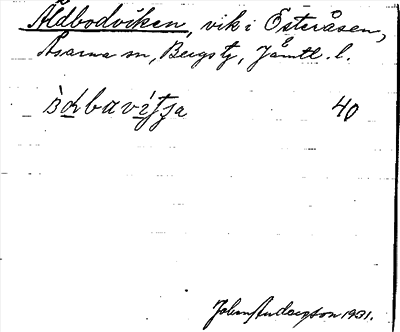 Äldbodviken, vik i Österåsen,
Åsarna sn, Bergs tg, Jämtl. l.
40
John Andersson 1931.